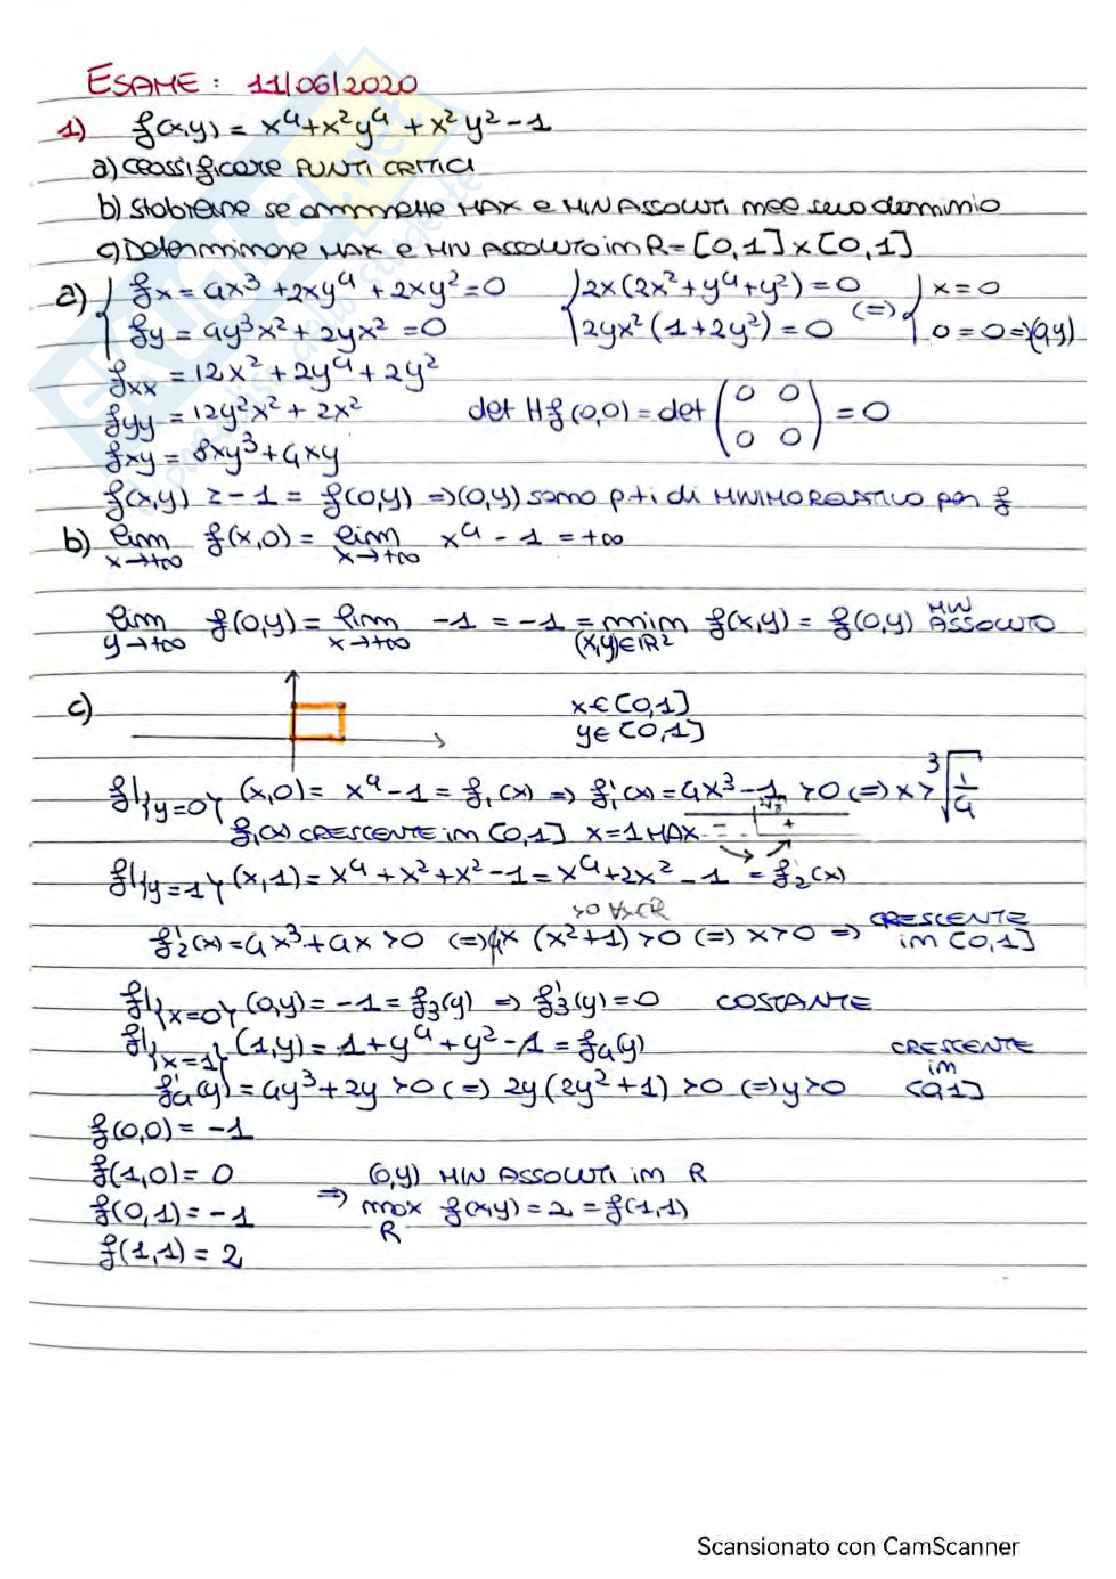 ESAME: 11/06/2020
1) f(x,y) = x⁴+x²y⁴ + x²y² - 1
a) classificare PUNTI CRITICI
b) Stabilire se ammette MAX e MIN ASSOLUTI nel suo dominio
c) Determinare MAX e MIN ASSOLUTO in R = [0,1] x [0,1]
a) { fx = 4x³ + 2xy⁴ + 2xy² = 0 { 2x(2x²+y⁴+y²) = 0 (=) { x = 0
{ fy = 4y³x² + 2yx² = 0 { 2yx²(1+2y²) = 0 { 0 = 0 => (0,y)
fxx = 12x² + 2y⁴ + 2y²
fyy = 12y²x² + 2x² det Hf(0,0) = det (0 0 0 0) = 0
fxy = 8xy³ + 4xy
f(x,y) ≥ -1 = f(0,y) => (0,y) sono p.ti di MINIMO RELATIVO per f
b) lim x→+∞ f(x,0) = lim x→+∞ x⁴ - 1 = +∞
lim y→+∞ f(0,y) = lim x→+∞ -1 = -1 = min (x,y)∈ℝ² f(x,y) = f(0,y) MIN ASSOLUTO
c) x∈[0,1]
y∈[0,1]
f|{y=0} (x,0) = x⁴ - 1 = f₁(x) => f₁'(x) = 4x³ - 1 > 0 (=) x > ³√1/4
f₁(x) CRESCENTE in [0,1] x=1 MAX - +
f|{y=1} (x,1) = x⁴ + x² + x² - 1 = x⁴ + 2x² - 1 = f₂(x)
>0 ∀x∈ℝ
f₂'(x) = 4x³ + 4x > 0 (=) 4x (x²+1) > 0 (=) x > 0 => CRESCENTE in [0,1]
f|{x=0} (0,y) = -1 = f₃(y) => f₃'(y) = 0 COSTANTE
f|{x=1} (1,y) = 1 + y⁴ + y² - 1 = f₄(y)
f₄'(y) = 4y³ + 2y > 0 (=) 2y(2y²+1) > 0 (=) y > 0 CRESCENTE in [0,1]
f(0,0) = -1
f(1,0) = 0 (0,y) MIN ASSOLUTI in R
f(0,1) = -1 => max R f(x,y) = 2 = f(1,1)
f(1,1) = 2
Scansionato con CamScanner